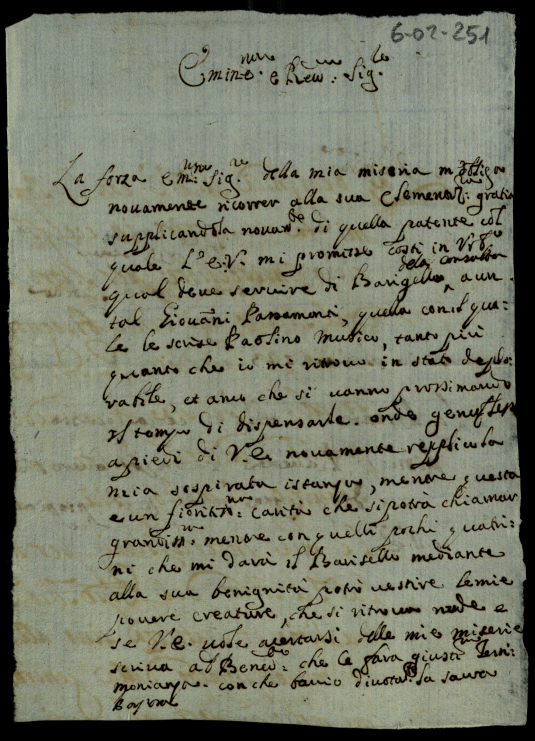 6-02-251
Emin.mo e Rev.mo Sig.re
La forza Em.mo Sig.re della mia miseria m'obliga
novamente ricorrer alla sua Clemenza gratia
supplicandola novam.te di quella patente col
quale l'E.V. mi promisse costì in
qual deve servire di Barigello della consulta a un
tal Giovanni Passamonti, quella con il qua-
le le scrisse Paolino Musico, tanto più
quanto che io mi ritrovo in stato deplo-
rabile, et anco che si vanno prossimando
il tempo di dispensarle. onde genuflesso
a piedi di V.E. novamente repplico la
mia sospirata istanza, mentre questa
e un fioritiss.ma carità che si potrà chiamar
grandiss.ma mentre con quelli pochi quatri-
ni che mi darà il Barisello mediante
alla sua benignità potrò vestire le mie
povere creature, che si ritrovano nude e
se V.E. vole acertarsi delle mie miserie
scriva al che le farà giusta Testi-
monianza. con che bacio divotam.te la sacra